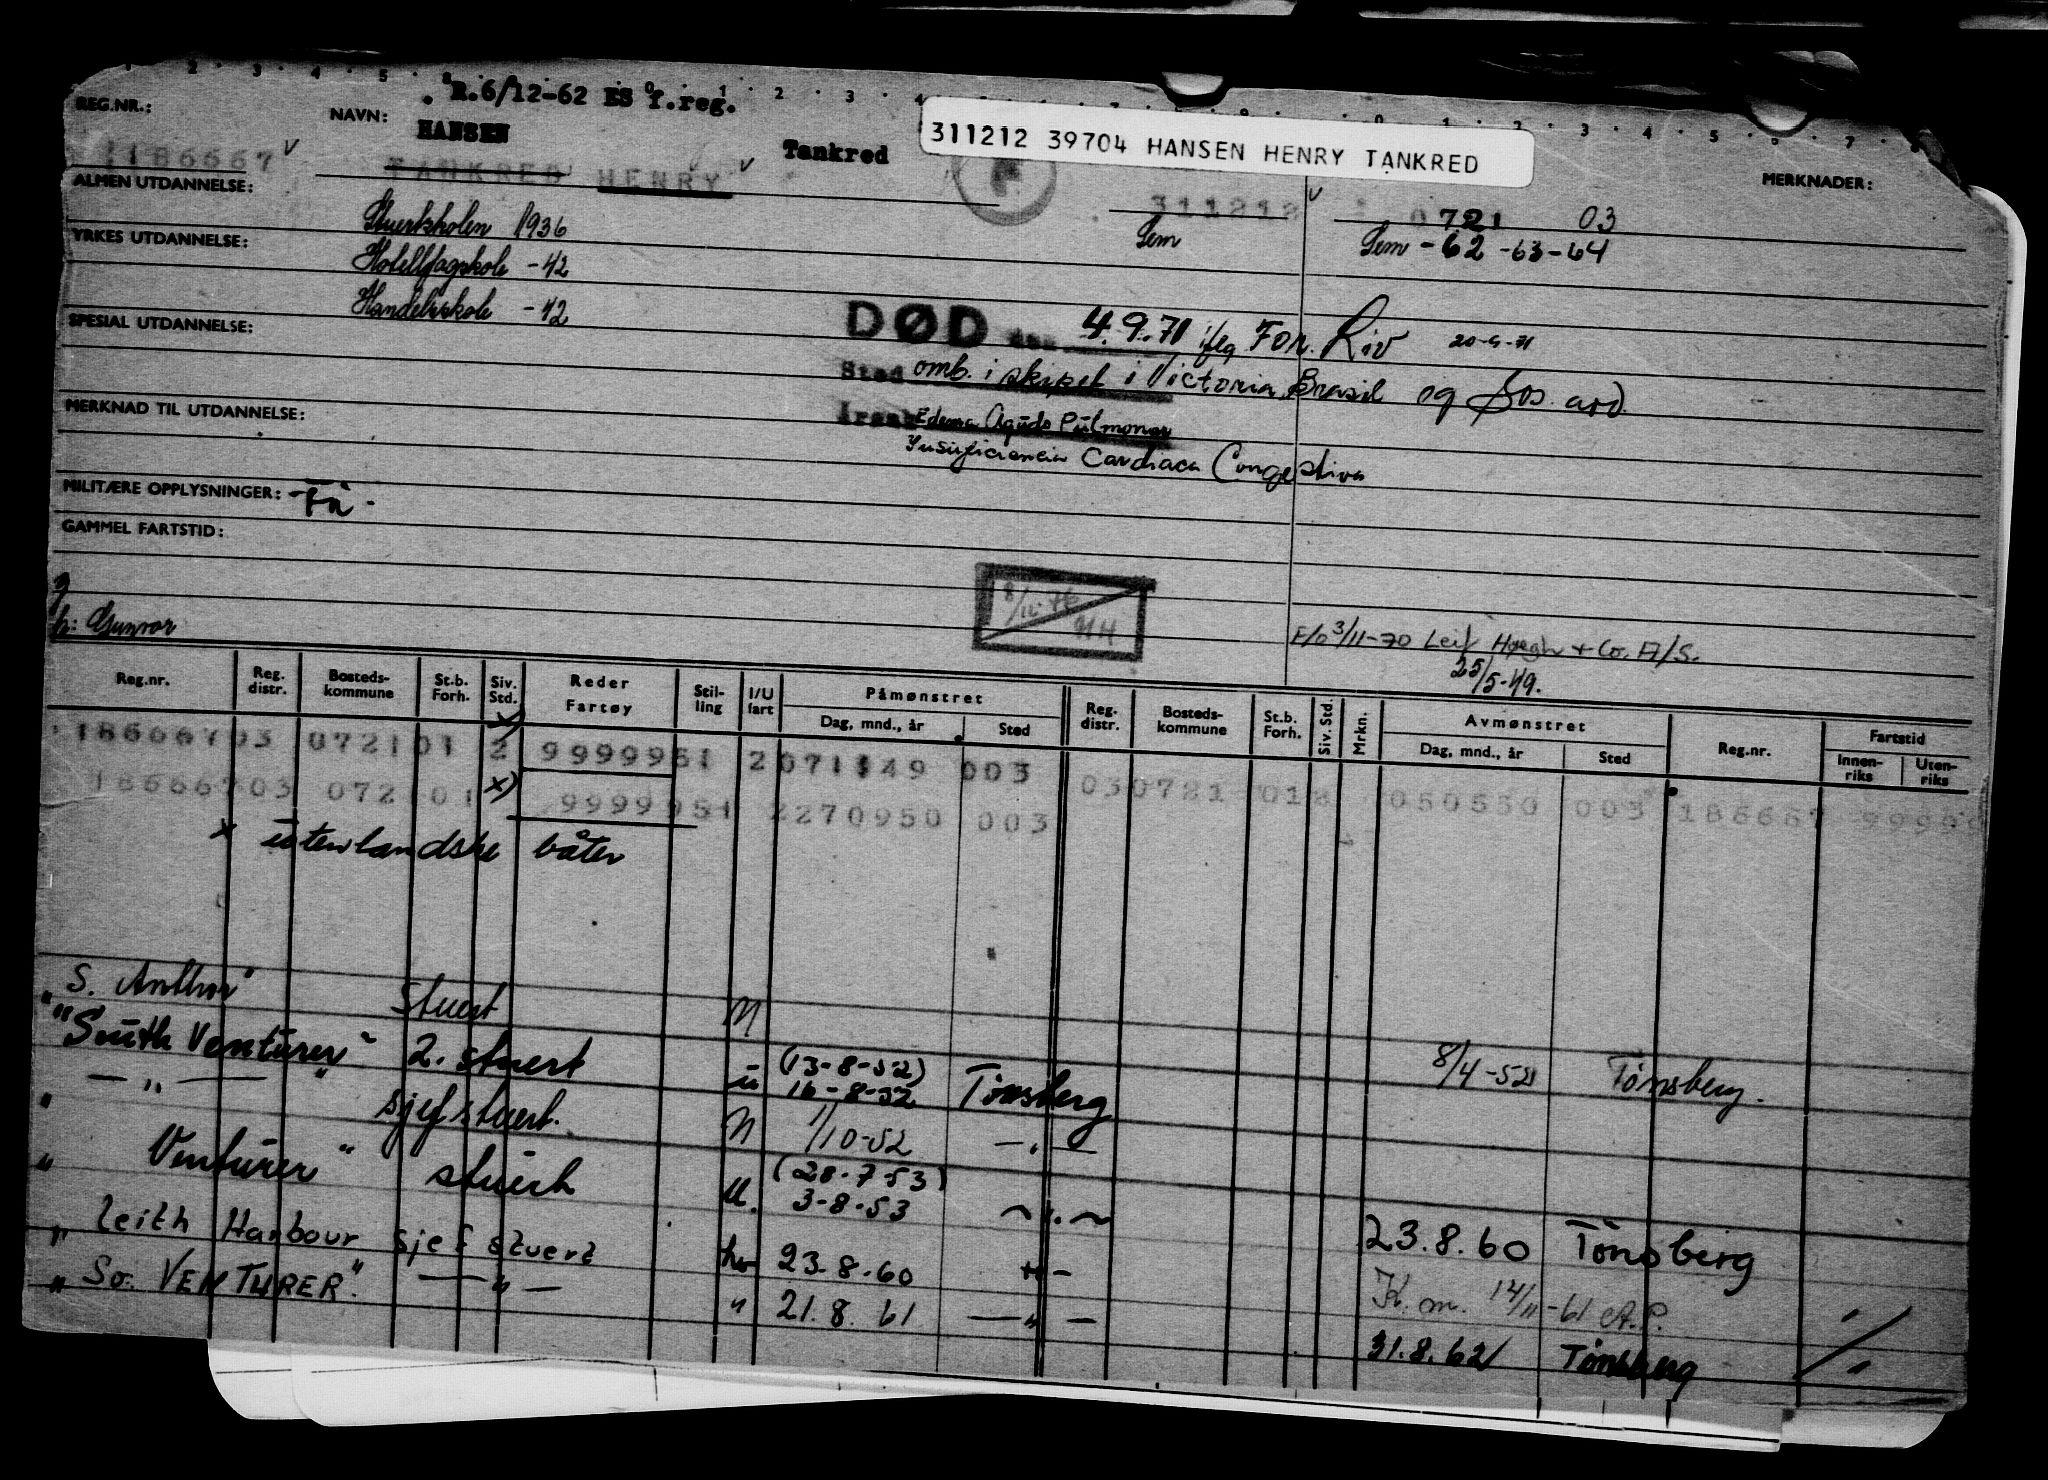 R.6/12-62 ES f.reg.
REG.NR.: NAVN: HANSEN Tankred
311212 39704 HANSEN HENRY TANKRED
186667 TANKRED HENRY
MERKNADER:
ALMEN UTDANNELSE:
311212 0721 03
Stuertskolen 1936 Sem Sem -62 -63-64
YRKES UTDANNELSE:
Hotellfagskole -42
Handelsskole -42
SPESIAL UTDANNELSE:
DØD den 4.9.71 iflg For. Riv 20-9-71
Sted omb. i skipet i Victoria, Brasil og Sos. avd.
MERKNAD TIL UTDANNELSE:
Årsak Edema Agudo Pulmonar
Insuficiencia Cardiaca Congestiva
MILITÆRE OPPLYSNINGER: -Fri-
GAMMEL FARTSTID:
g
h: Gunvor
8/11-76
NH
F/o 3/11-70 Leif Høegh + Co. A/S.
25/5-49.
Reg.nr. Reg. distr. Bosteds-kommune St.b. Forh. Siv. Std. Reder Fartøy Stil-ling I/U fart Påmønstret Dag, mnd., år Sted Reg. distr. Bosteds-kommune St.b. Forh. Siv. Std. Mrkn. Avmønstret Dag, mnd., år Sted Reg.nr. Fartstid Innen-riks Uten-riks
18666703 072101 2 x) 9999951 2071149 003
18666703 072101 x) 9999951 2270950 003 030721 01 050550 003 186667 99999
x utenlandske båter
"S. Anthur" Stuert N 8/4-52 Tønsberg.
"South Venturer" 2. stuert u (13-8-52) 16-8-52 Tønsberg
— " — " sjefstuert. N 1/10-52 — " —
" Venturer" stuert u. (28-7-53) 3-8-53 — " — 23.8.60 Tönsberg
" Leith Harbour sjef stuert hv 23.8.60 — " — K. m. 14/11-61 A.P. "
" So. VENTURER". — " — " 21.8.61 — " — 31.8.62 Tønsberg "